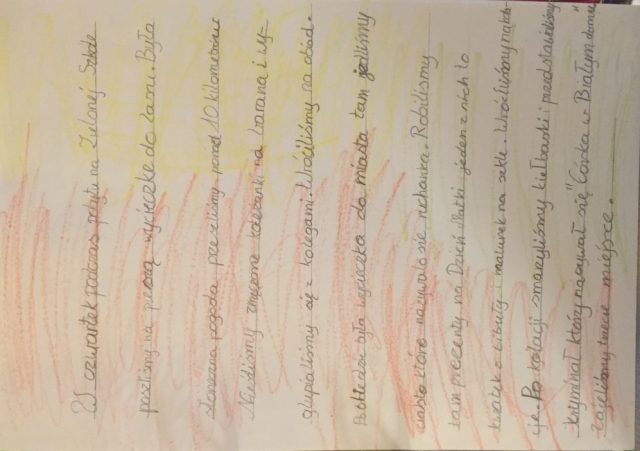 W czwartek podczas pobytu na Zielonej Szkole
poszliśmy na pieszą wycieczkę do lasu. Była
słoneczna pogoda przeszliśmy ponad 10 kilometrów
Nieśliśmy zmęczone koleżanki na barana i wy-
głupialiśmy się z kolegami. Wróciliśmy na obiad.
Potem była wycieczka do miasta tam jedliśmy
ciasto które nazywało się Robiliśmy
tam prezenty na Dzień Matki jeden z nich to
kwiatek z bibuły i malunek na szkle. Wróciliśmy na kola-
cje. Po kolacji smażyliśmy kiełbaski i przedstawialiśmy
kryminał który nazywał się "Córka w Białym domu"
zajęliśmy trzecie miejsce.